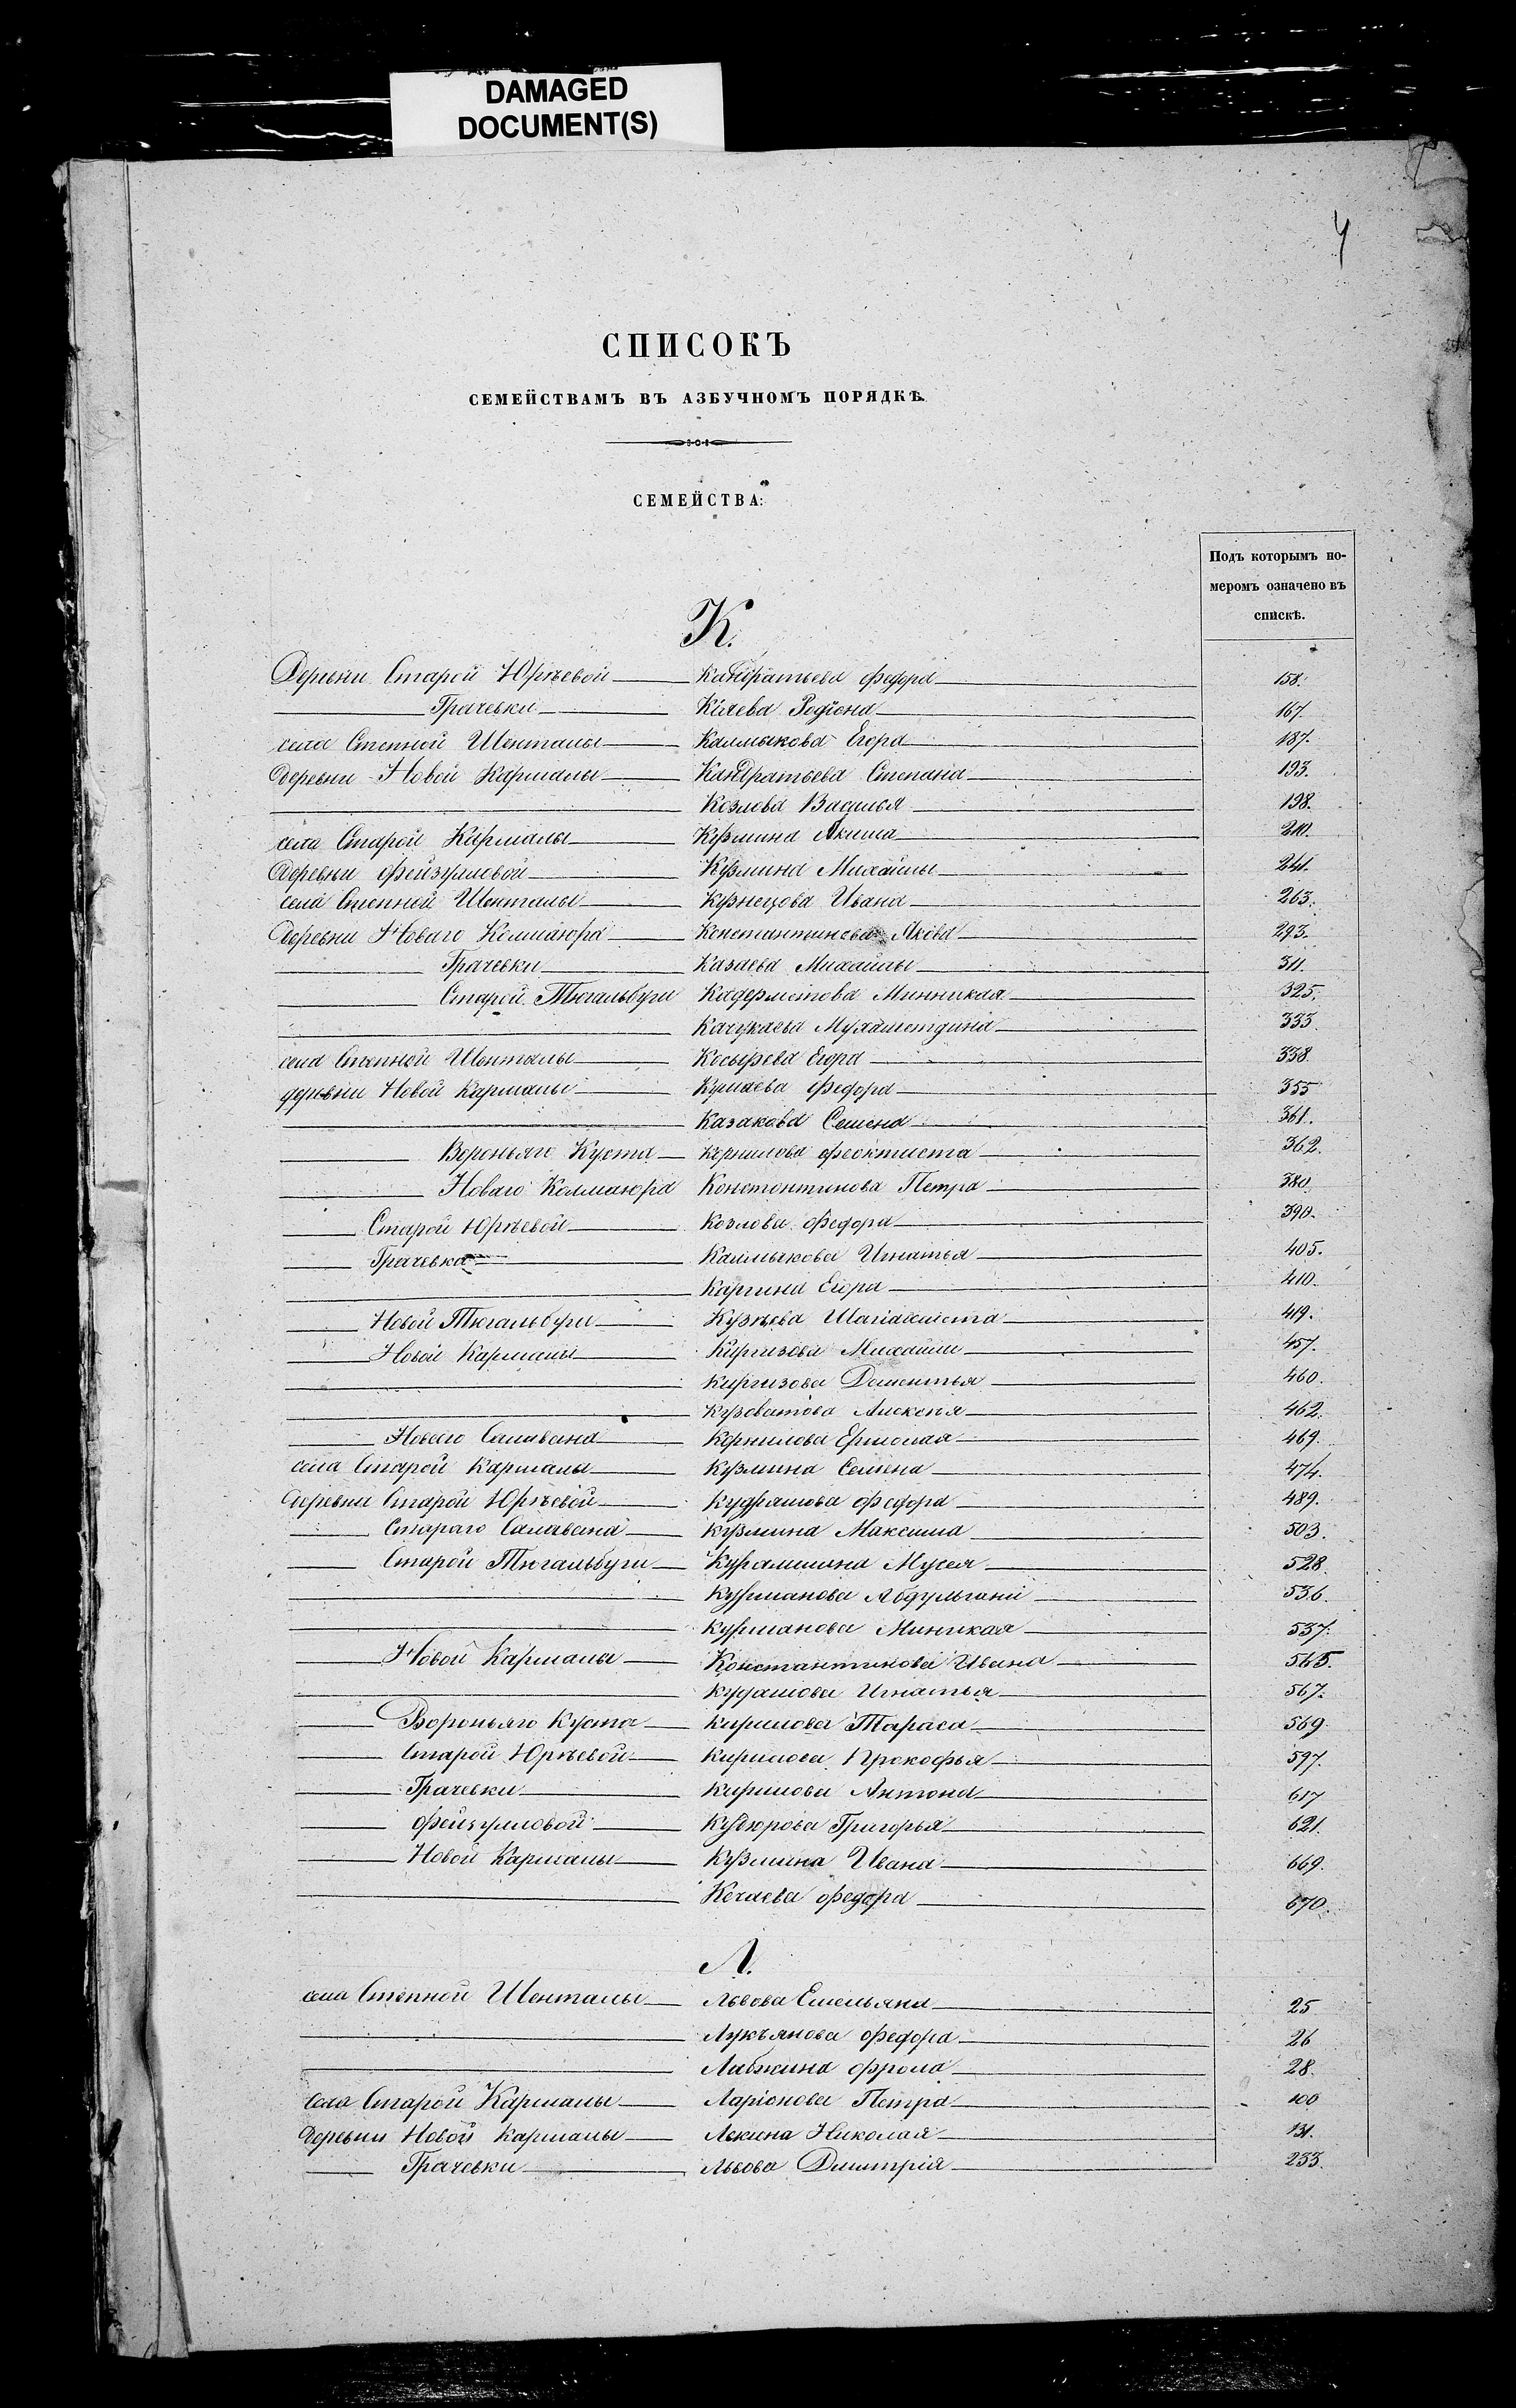 DAMAGED
DOCUMENT(S)
4
СПИСОКЪ
СЕМЕЙСТВАМЪ ВЪ АЗБУЧНОМЪ ПОРЯДКѢ.
СЕМЕЙСТВА:
Подъ которымъ но-
меромъ означено въ
спискѣ.
К.
Деревни Старой Юрѣевой Кандратьева Федора 158.
Грачевки Кіяева Родіона 167.
села Степной Шенталы Калмыкова Егора 187.
Деревни Новой Кармалы Кандратьева Степана 193.
Козлова Василья 198.
села Старой Кармалы Кузмина Акима 210.
Деревни Фейзуловой Кузмина Михайлы 241.
села Степной Шенталы Кузнецова Ивана 263.
Деревни Новаго Колмаюра Константинова Якова 293.
Грачевки Казаева Михайлы 311.
Старой Тюгальбуги Кадерметова Минникая 325.
Качкаева Мухаметдина 333.
села Степной Шенталы Косырева Егора 338.
деревни Новой Кармалы Кумаева Федора 355
Казакова Семена 361.
Вороньяго Куста Корнилова Феоктиста 362.
Новаго Колмаюра Константинова Петра 380.
Старой Юрѣевой Козлова Федора 390.
Грачевка Калмыкова Игнатья 405.
Каргина Егора 410.
Новой Тюгальбуги Кузяева Шагіахмета 419.
Новой Кармалы Киргизова Михайлы 457.
Киргизова Дементья 460.
Кузоватова Алексѣя 462.
Новаго Салавана Корнилова Ермолая 469.
села Старой Кармалы Кузмина Семена 474.
Деревни Старой Юрѣевой Кудряшова Федора 489.
Стараго Салавана Кузмина Максима 503.
Старой Тюгальбуги Курамшина Мусея 528.
Курманова Абдульгани 536.
Курманова Миникая 537.
Новой Кармалы Константинова Ивана 565.
Кудашова Игнатья 567.
Вороньяго Куста Кирилова Тараса 569.
Старой Юрѣевой Кирилова Прокофья 597.
Грачевки Кирилова Антона 617
Фейзуловой Кубюрова Григорья 621.
Новой Кармалы Кузмина Ивана 669.
Кечаева Федора 670.
Л.
села Степной Шенталы Львова Емельяна 25
Лукъянова Федора 26
Лабжина Фрола 28.
села Старой Кармалы Ларіонова Петра 100
Деревни Новой Кармалы Лекина Николая 131.
Грачевки Львова Дмитрія 233.